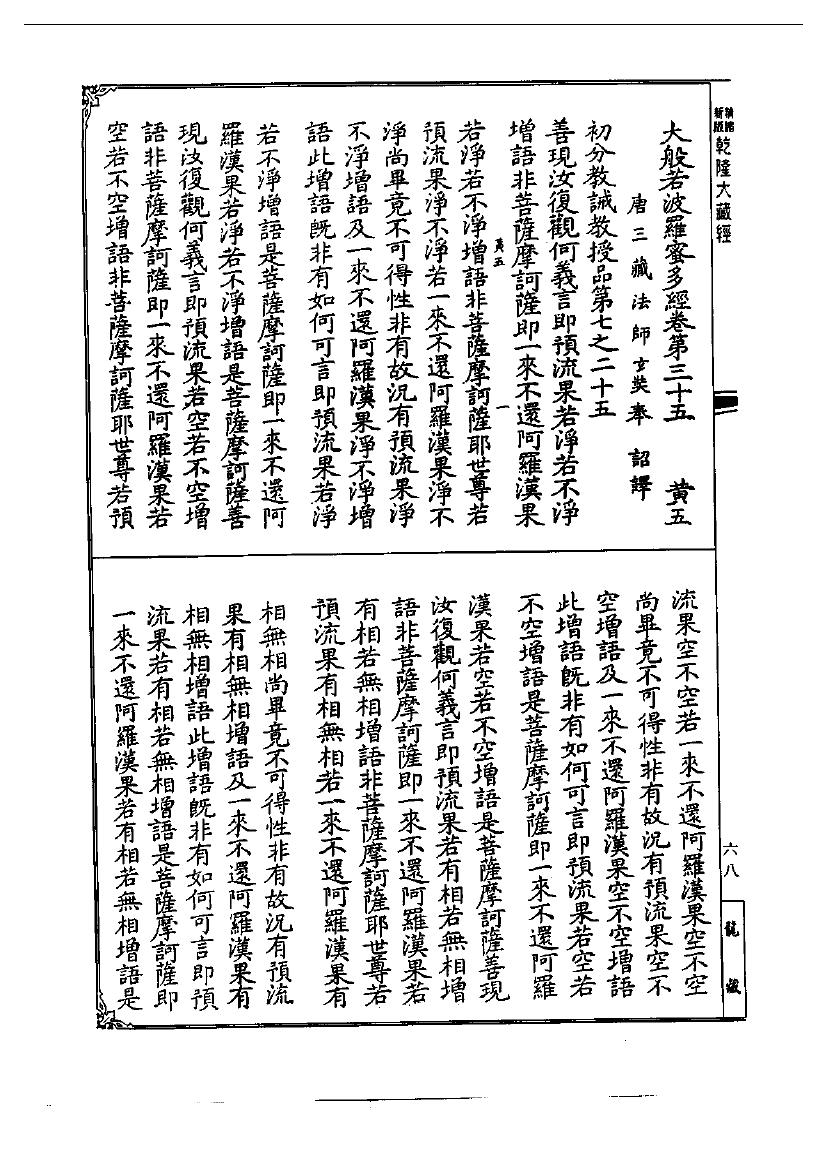 新版
乾隆大藏經
大般若波羅蜜多經卷第三十五　黃五
唐三藏法師玄奘奉　詔譯
初分教誡教授品第七之二十五
善現汝復觀何義言即預流果若淨若不淨
增語非菩薩摩訶薩即一來不還阿羅漢果
黃五　一
若淨若不淨增語非菩薩摩訶薩耶世尊若
預流果淨不淨若一來不還阿羅漢果淨不
淨尚畢竟不可得性非有故況有預流果淨
不淨增語及一來不還阿羅漢果淨不淨增
語此增語既非有如何可言即預流果若淨
若不淨增語是菩薩摩訶薩即一來不還阿
羅漢果若淨若不淨增語是菩薩摩訶薩善
現汝復觀何義言即預流果若空若不空增
語非菩薩摩訶薩即一來不還阿羅漢果若
空若不空增語非菩薩摩訶薩耶世尊若預
流果空不空若一來不還阿羅漢果空不空
尚畢竟不可得性非有故況有預流果空不
空增語及一來不還阿羅漢果空不空增語
此增語既非有如何可言即預流果若空若
不空增語是菩薩摩訶薩即一來不還阿羅
漢果若空若不空增語是菩薩摩訶薩善現
汝復觀何義言即預流果若有相若無相增
語非菩薩摩訶薩即一來不還阿羅漢果若
有相若無相增語非菩薩摩訶薩耶世尊若
預流果有相無相若一來不還阿羅漢果有
相無相尚畢竟不可得性非有故況有預流
果有相無相增語及一來不還阿羅漢果有
相無相增語此增語既非有如何可言即預
流果若有相若無相增語是菩薩摩訶薩即
一來不還阿羅漢果若有相若無相增語是
六八
龍藏